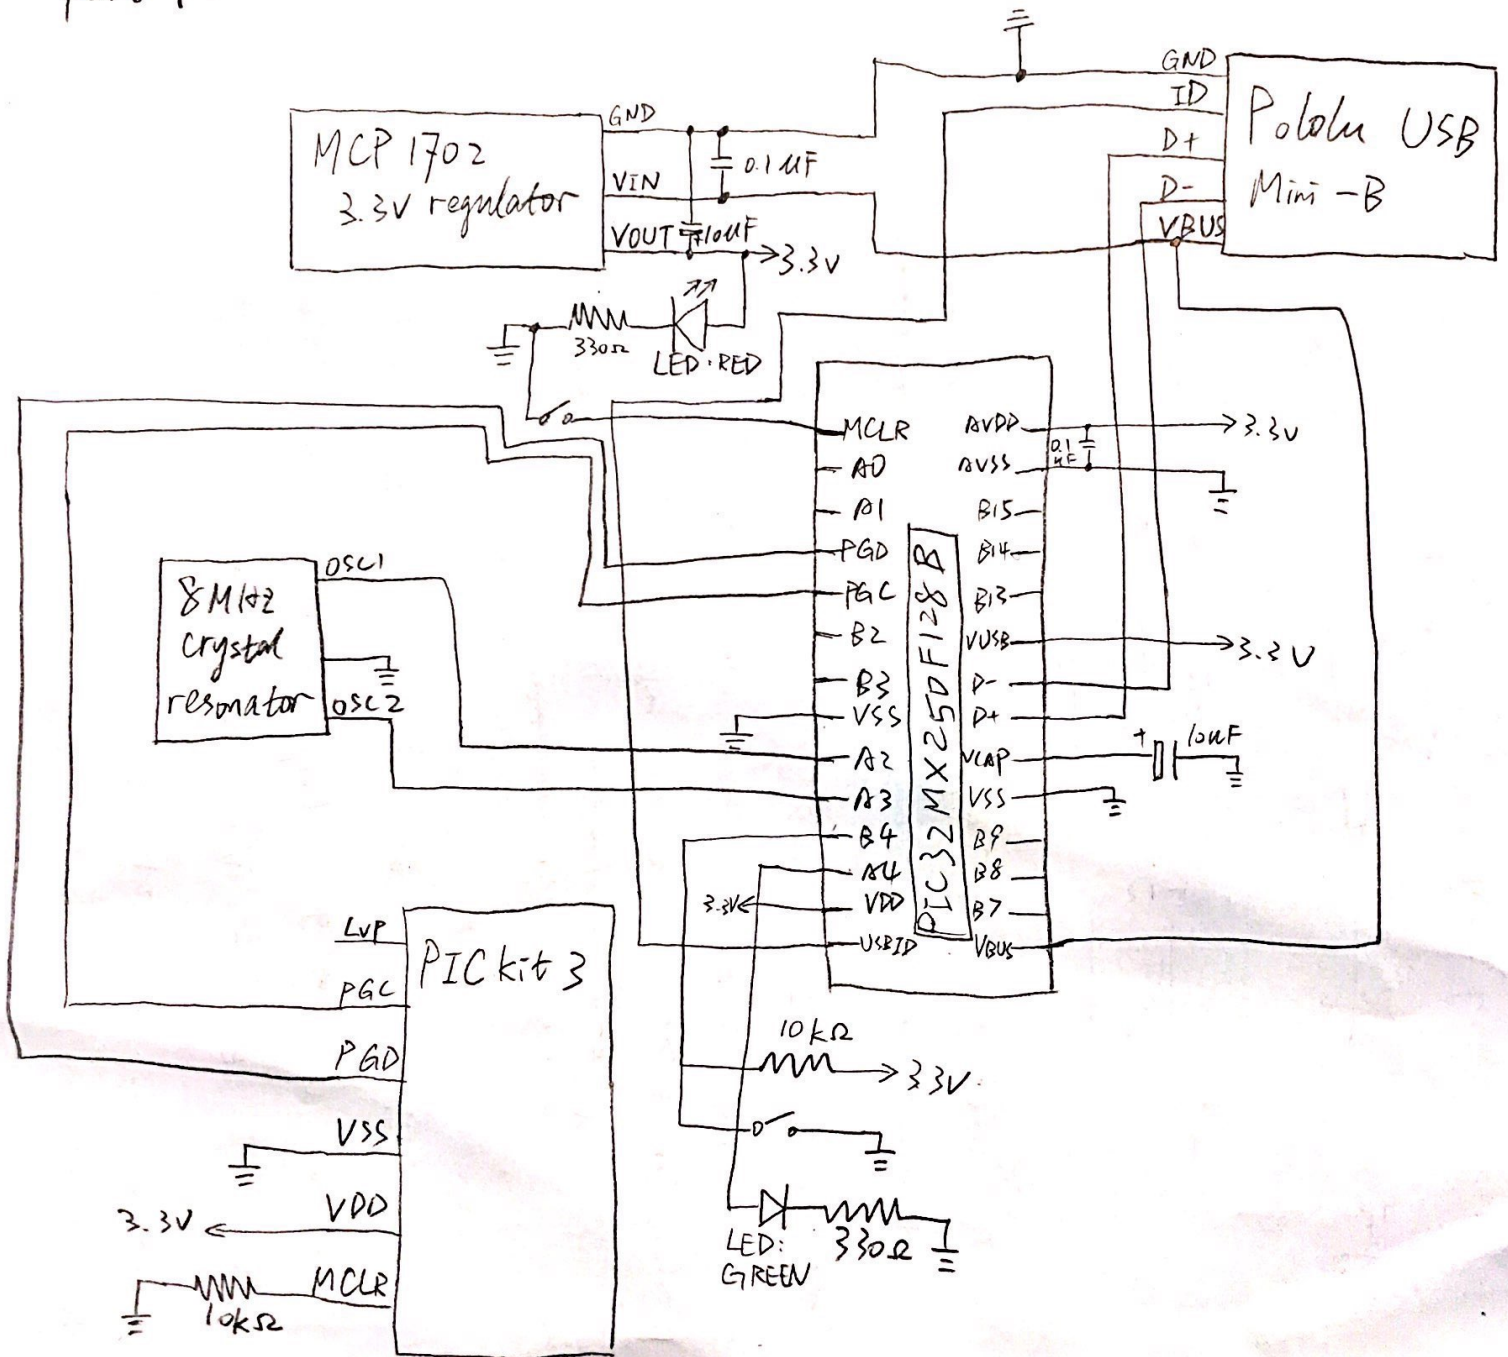 GND
ID
D+
D-
VBUS
Pololu USB
Mini-B
MCP 1702
3.3V regulator
GND
VIN
VOUT
0.1 uF
+10uF
3.3V
330Ω
LED: RED
MCLR
A0
A1
PGD
PGC
B2
B3
VSS
A2
A3
B4
A4
VDD
USBID
PIC32MX250F128B
AVDD
AVSS
B15
B14
B13
VUSB
D-
D+
VCAP
VSS
B9
B8
B7
VBUS
0.1
uF
3.3V
3.3V
+ 10uF
3.3V
8MHz
crystal
resonator
OSC1
OSC2
PICkit 3
LVP
PGC
PGD
VSS
VDD
MCLR
3.3V
10kΩ
10kΩ
3.3V
LED:
GREEN
330Ω